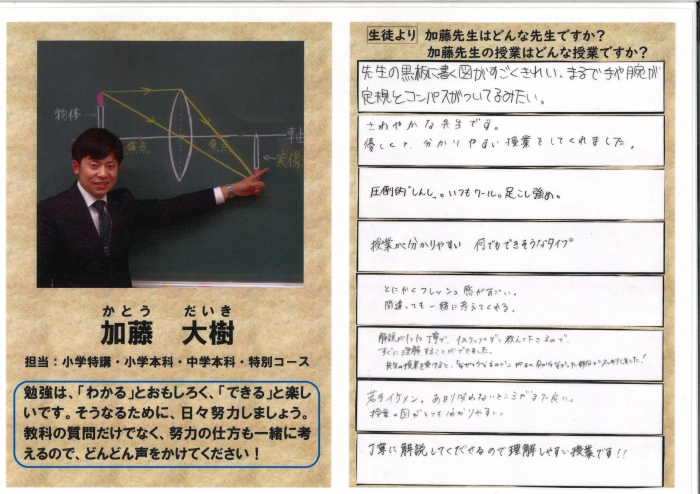 物体
焦点
焦点
実像
かとう だいき
加藤 大樹
担当：小学特講・小学本科・中学本科・特別コース
勉強は、「わかる」とおもしろく、「できる」と楽し
いです。そうなるために、日々努力しましょう。
教科の質問だけでなく、努力の仕方も一緒に考
えるので、どんどん声をかけてください！
生徒より 加藤先生はどんな先生ですか？
加藤先生の授業はどんな授業ですか？
先生の黒板に書く図がすごくきれい、まるで手や腕が
定規とコンパスがついてるみたい。
さわやかな先生です。
優しくて、分かりやすい授業をしてくれました。
圧倒的しんし。いつもクール。足こし強め。
授業が分かりやすい 何でもできそうなタイプ
とにかくフレッシュ感がすごい。
間違っても一緒に考えてくれる。
解説がとても丁寧で、1ステップずつ教えて下さるので、
すぐに理解することができました。
先生の授業を受けると、
若手イケメン。あまり
授業の図がとても分かりやすい。
丁寧に解説してくださるので理解しやすい授業です!!